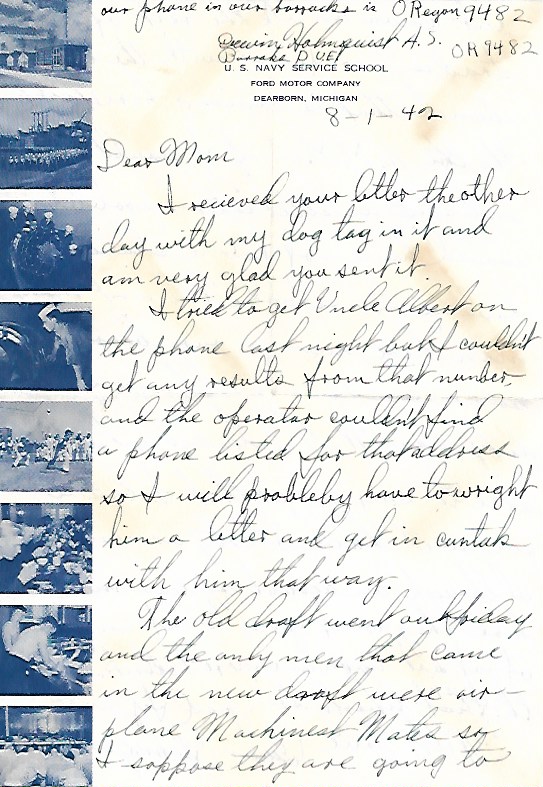 our phone in our barracks is ORegon 9482
Holmquist A.S. OR 9482
Barraks D UEI
U. S. NAVY SERVICE SCHOOL
FORD MOTOR COMPANY
DEARBORN, MICHIGAN
8-1-42
Dear Mom
I recieved your letter the other
day with my dog tag in it and
am very glad you sent it.
I tried to get Uncle Albert on
the phone last night but I couldn't
get any results from that number,
and the operator couldn't find
a phone listed for that address
so I will probleby have to wright
him a letter and get in cuntak
with him that way.
The old draft went out friday
and the only men that came
in the new draft were air-
plane Machinest Mates so
I soppose they are going to